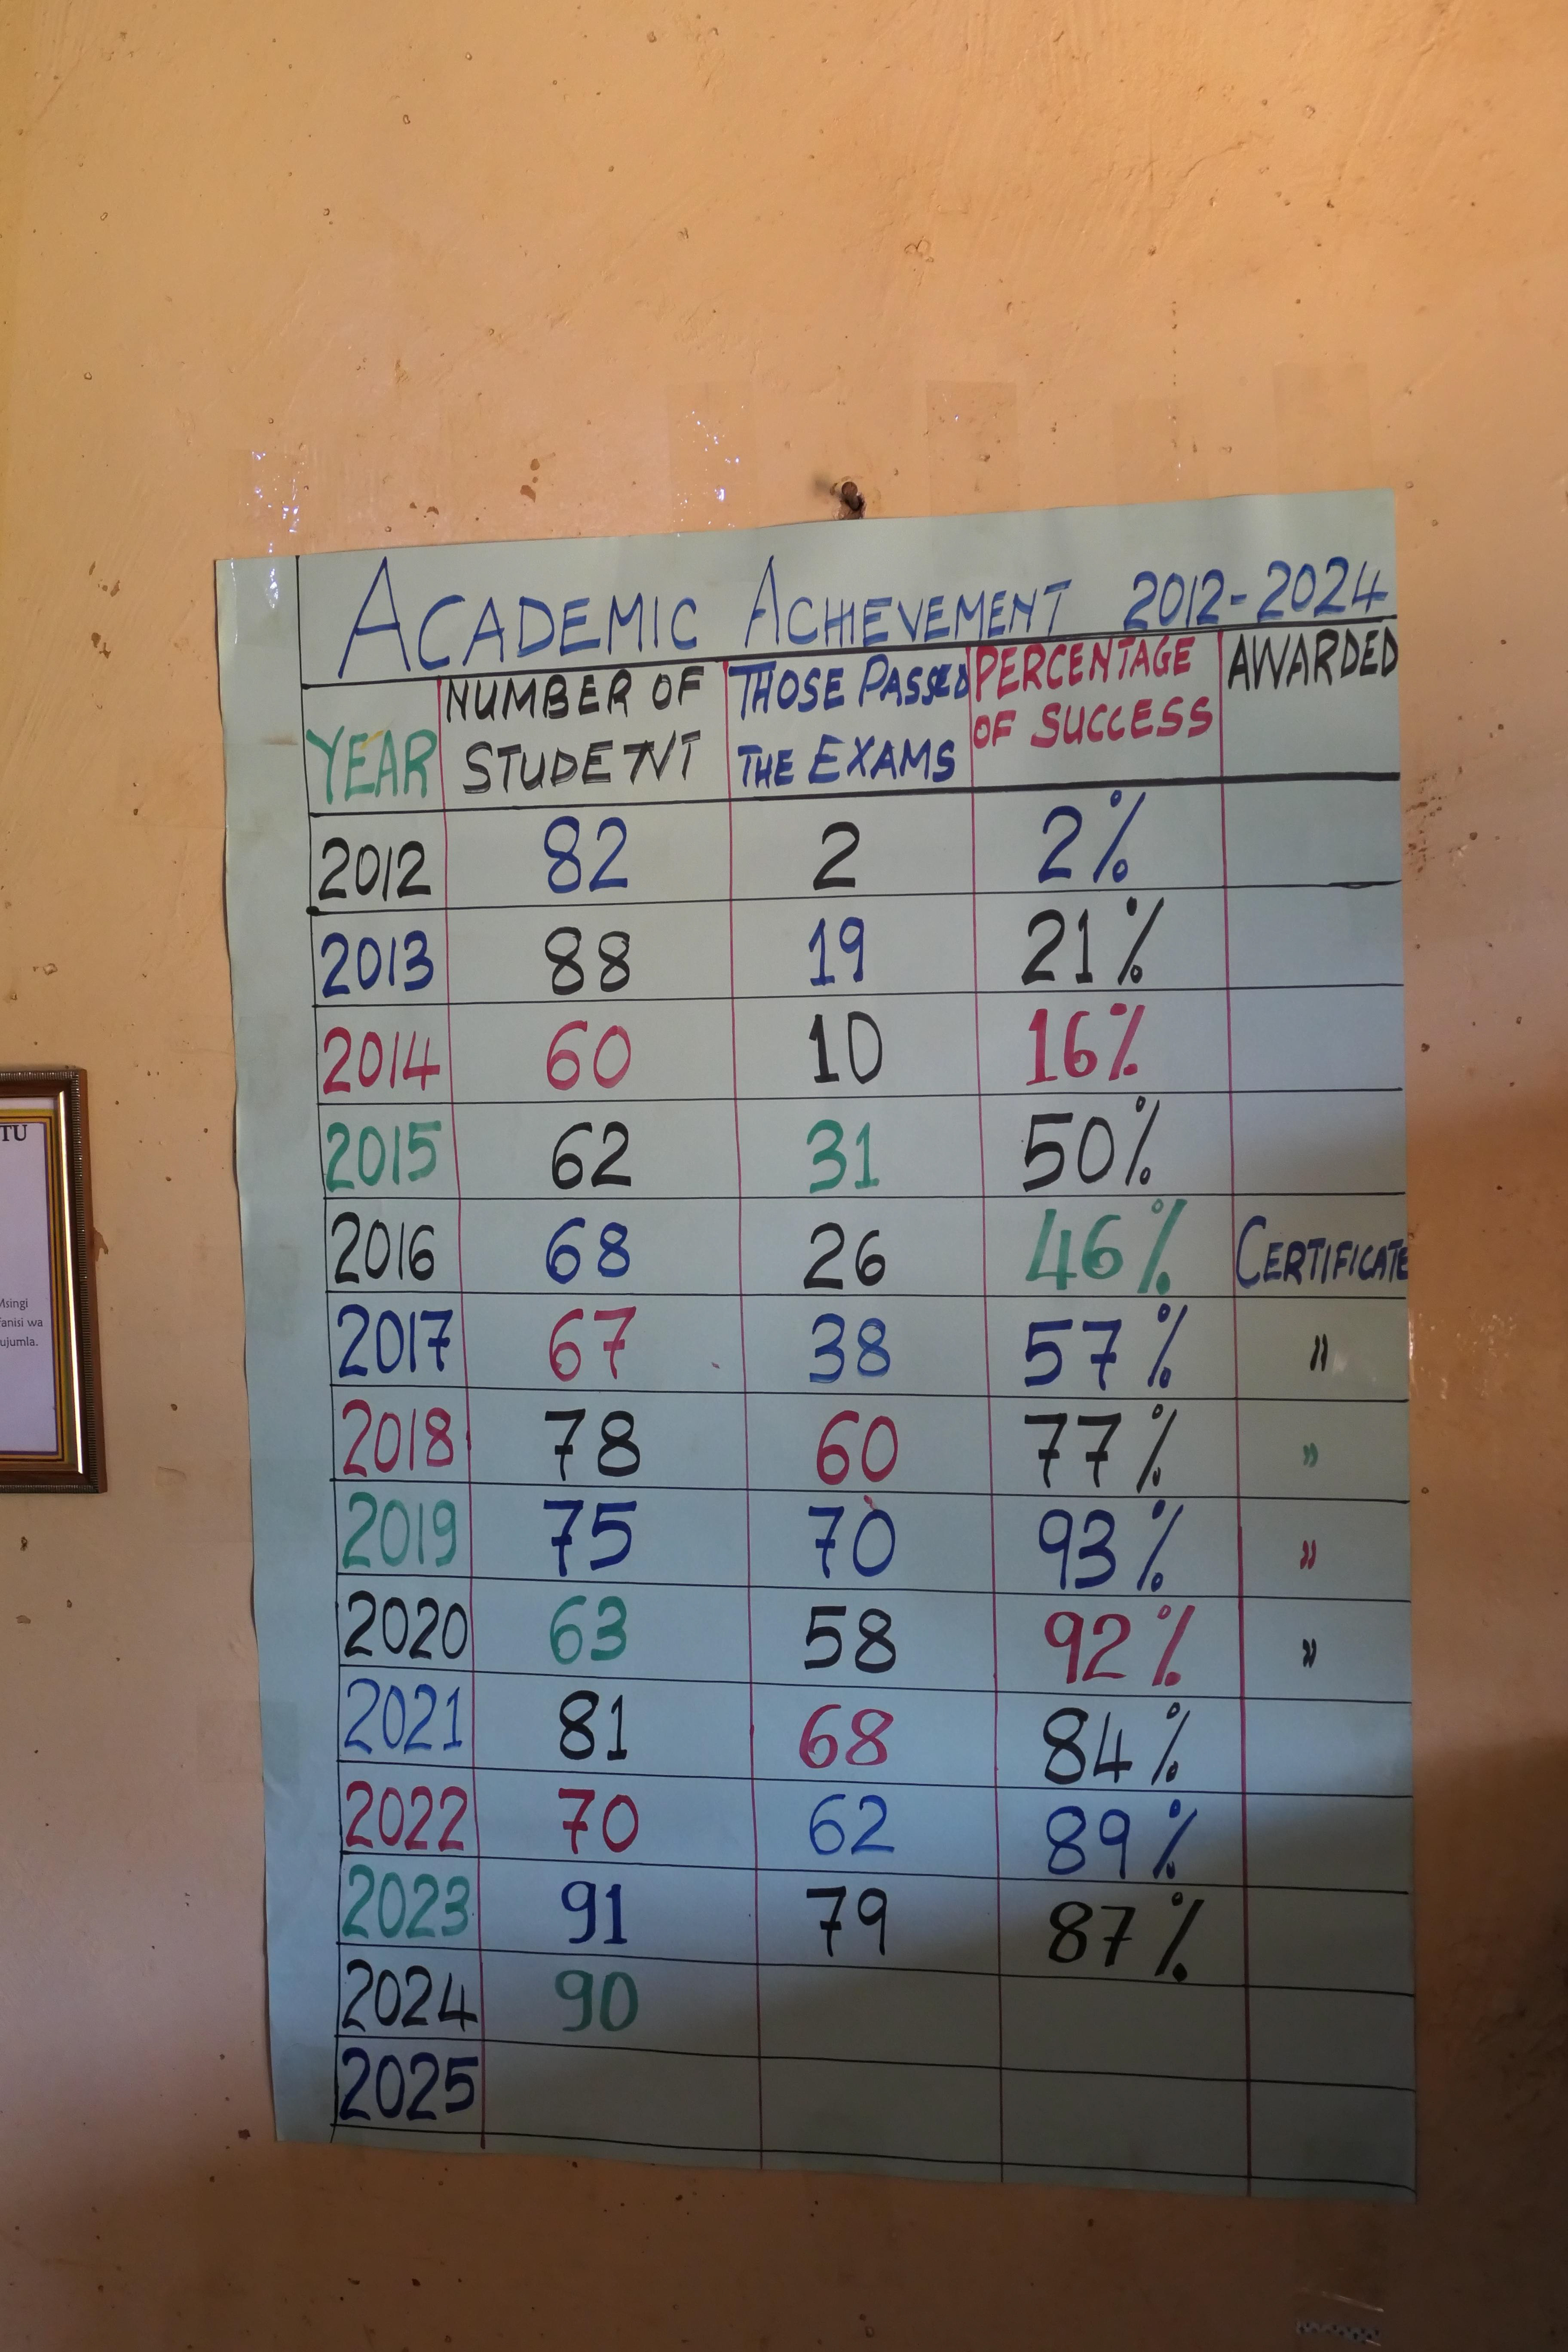 ACADEMIC ACHIEVEMENT 2012-2024
YEAR NUMBER OF STUDENT THOSE PASSED THE EXAMS PERCENTAGE OF SUCCESS AWARDED
2012 82 2 2%
2013 88 19 21%
2014 60 10 16%
2015 62 31 50%
2016 68 26 46% CERTIFICATE
2017 67 38 57% "
2018 78 60 77% "
2019 75 70 93% "
2020 63 58 92% "
2021 81 68 84%
2022 70 62 89%
2023 91 79 87%
2024 90
2025
TU
Msingi
fanisi wa
ujumla.